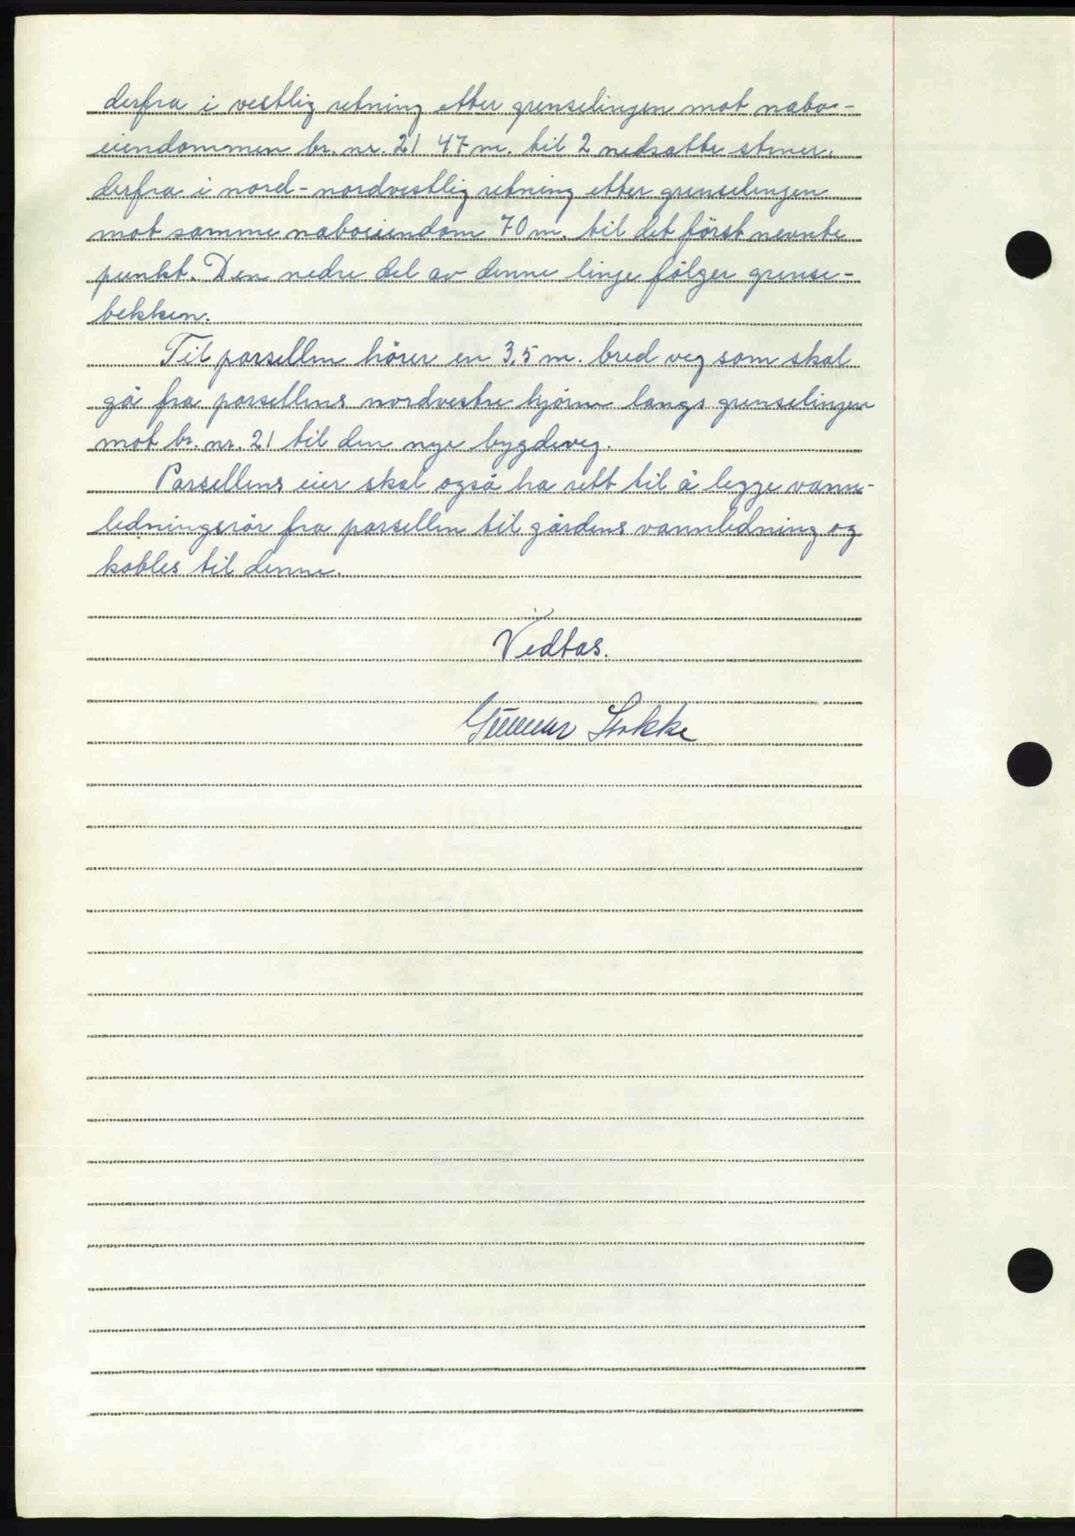 derfra i vestlig retning etter grenselinjen mot nabo-
eiendommen br. nr. 21 47 m. til 2 nedsatte stener,
derfra i nord-nordvestlig retning etter grenselinjen
mot samme naboeiendom 70 m. til det först nevnte
punkt. Den nedre del av denne linje fölger grense-
bekken.
Til parsellen hörer en 3,5 m. bred veg som skal
gå fra parsellens nordvestre hjörne langs grenselinjen
mot br. nr. 21 til den nye bygdeveg.
Parsellens eier skal også ha rett til å legge vann-
ledningsrör fra parsellen til gårdens vannledning og
kobles til denne.
Vedtas.
Gunnar Stokke